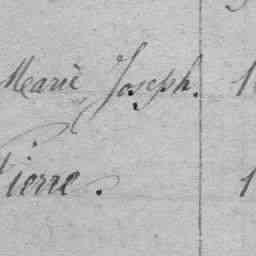 Marie Joseph. 1
Pierre. 1